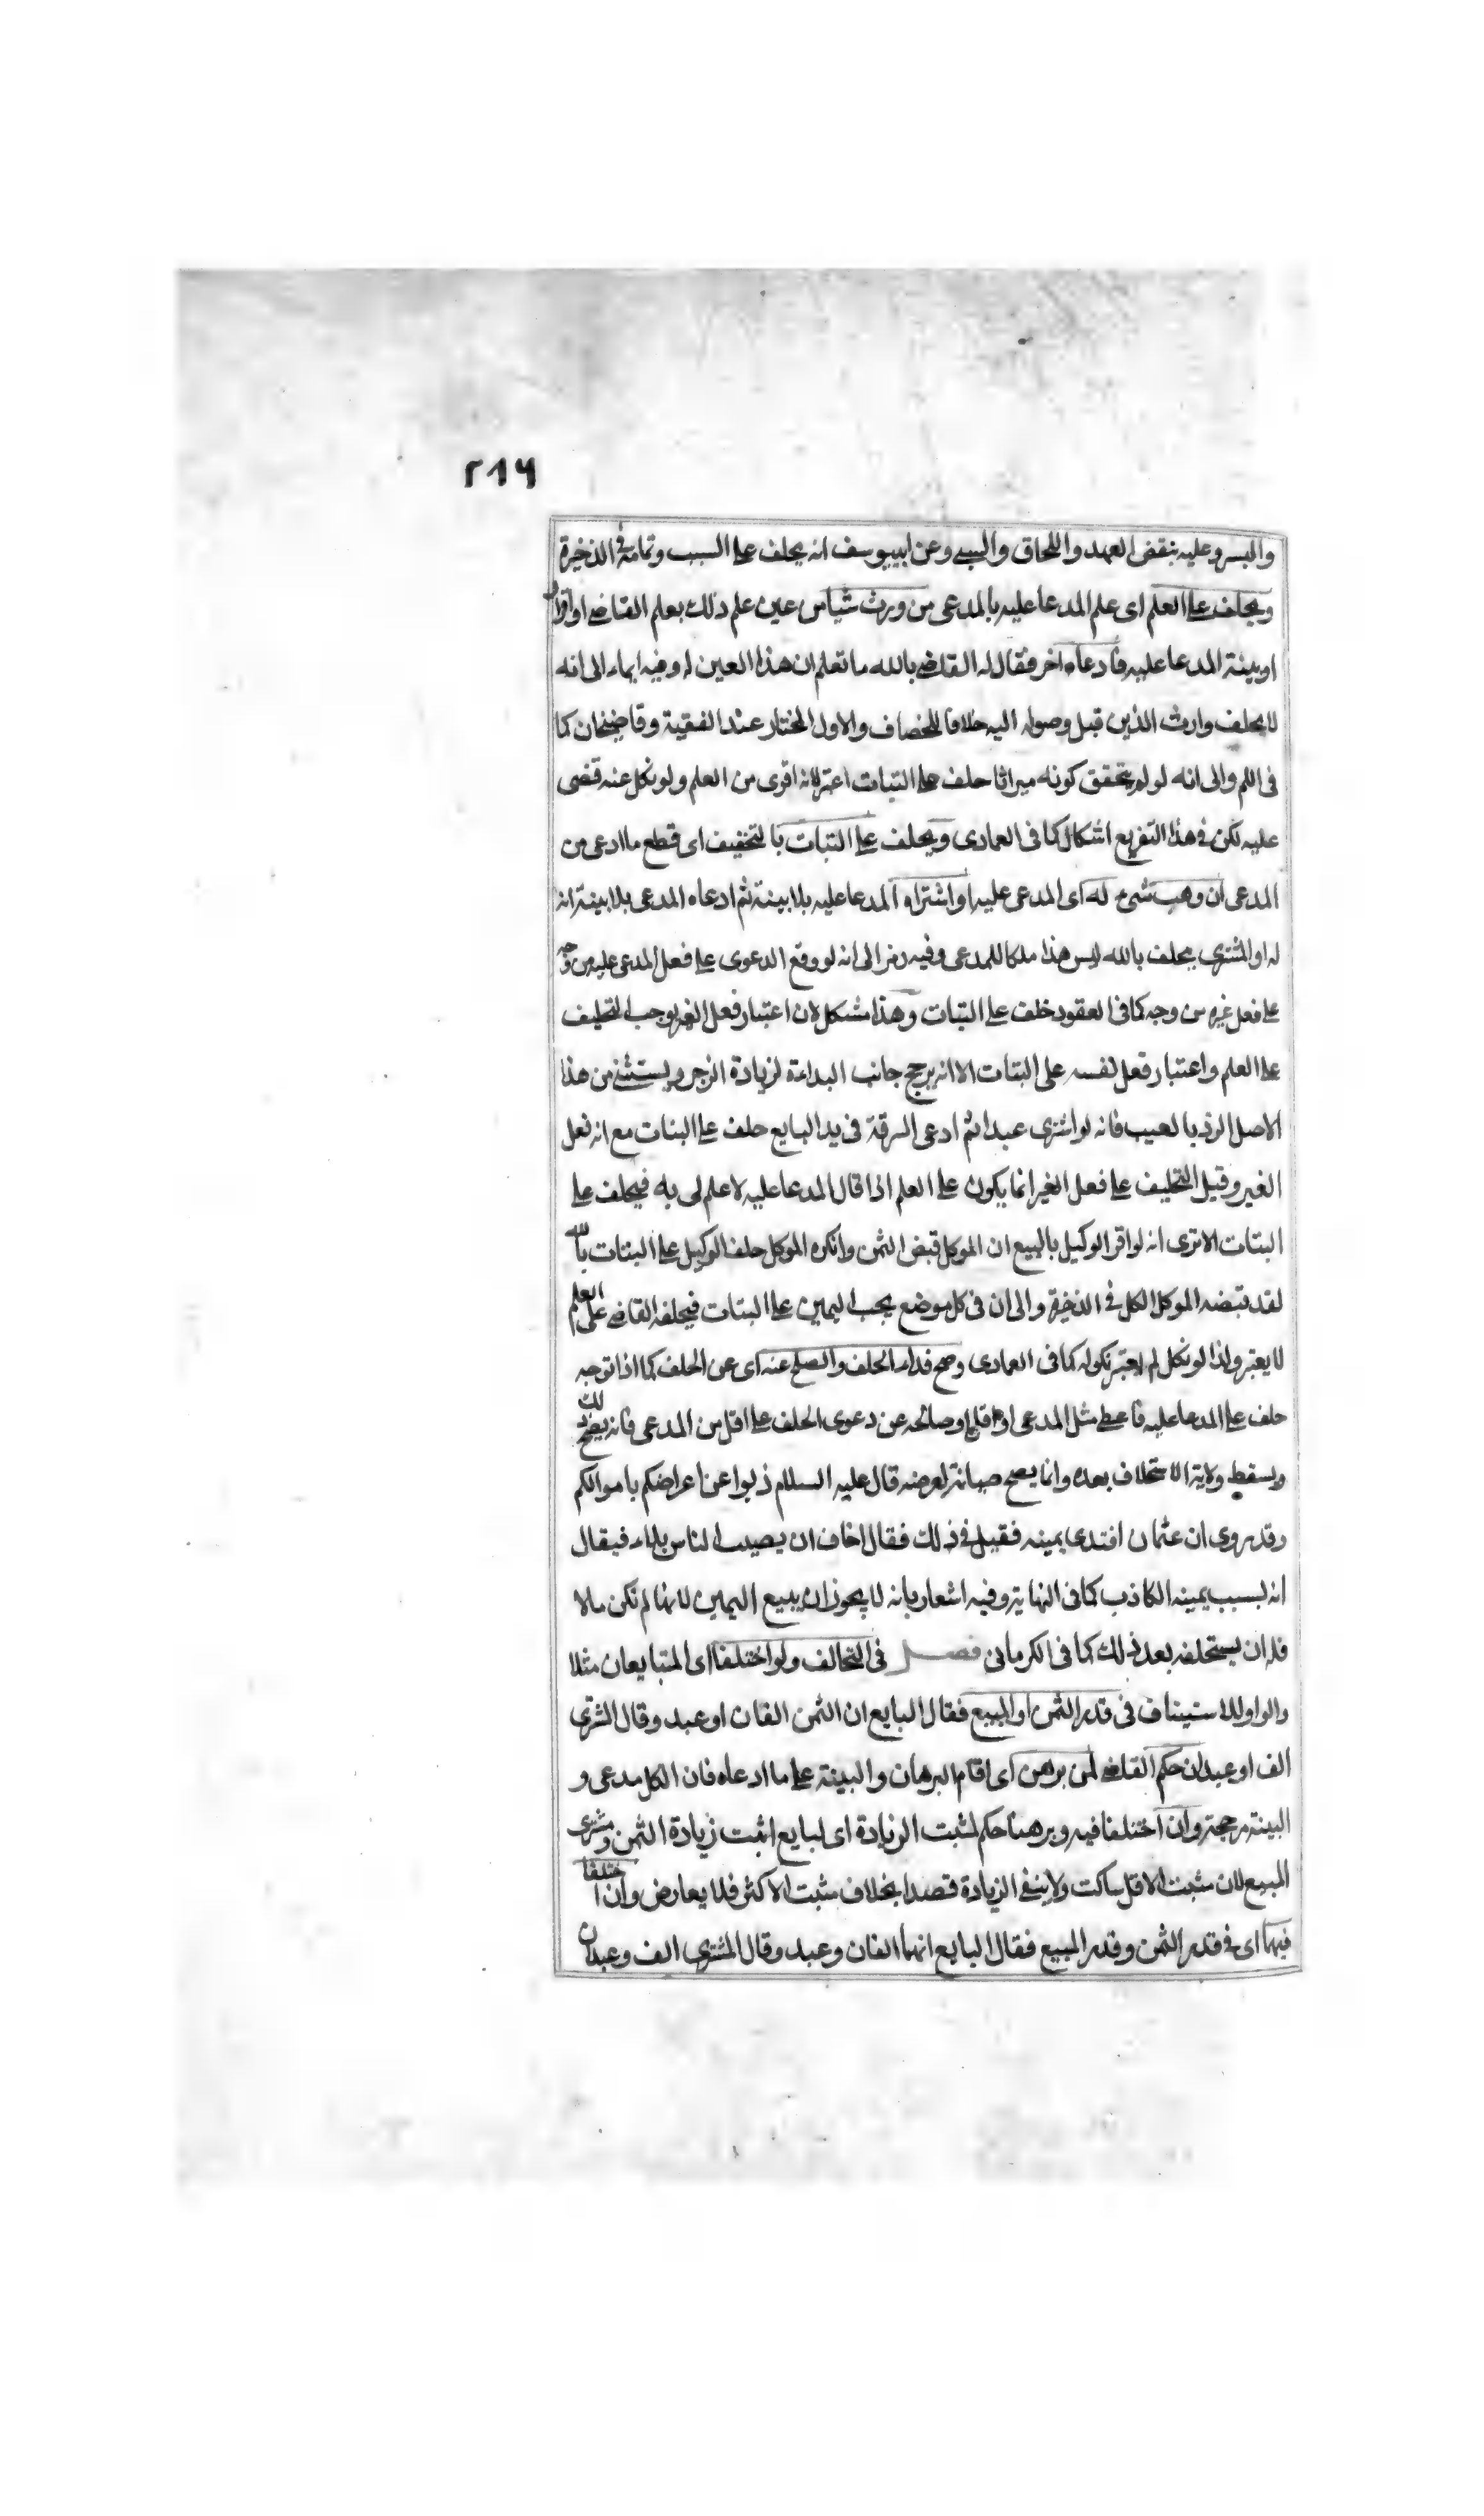 ٢٨٦
والبس وعليه بنقض العهد واللحاق والسبى وعن ابييوسف انه يحلف على السبب وتمامه فى الذخيرة
ويحلف على العلم اى علم المدعا عليه بالمدعى من ورث شيأ من عين علم ذلك بعلم القاضى او اقرار
او بينة المدعا عليه فادعاه اخر فقال له القاضى بالله ما تعلم ان هذا العين له وفيه ايماء الى انه
لا يحلف وارث الذين قبل وصوله اليه خلافا للخصاف والاول المختار عند الفقيه وقاضيخان كما
فى اللم والى انه لو لم يتحقق كونه ميراثا حلف على البتات اعتر لانه اقوى من العلم ولو نكل عنه قضى
عليه لكن فى هذا التفريع اشكال كما فى العمادى ويحلف على البتات بالتخفيف اى قطع ما ادعى من
المدعى ان وهب شئ له اى المدعى عليه او اشتراه المدعا عليه بلا بينة ثم ادعاه المدعى بلا بينة انه
له او المشترى يحلف بالله ليس هذا ملكا للمدعى وفيه رمز الى انه لو وقع الدعوى على فعل المدعى عليه من وجه
على فعل غيره من وجه كما فى العقود خلف على البتات وهذا مشكل لان اعتبار فعل الغير يوجب التحليف
على العلم واعتبار فعل نفسه على البتات الا انه يرجح جانب البداءة لزيادة الزجر ويستثنى من هذا
الاصل الرد بالعيب فانه لو اشترى عبدا ثم ادعى السرقة فى يد البايع حلف على البتات مع انه فعل
الغير وقيل التحليف على فعل الغير انما يكون على العلم اذا قال المدعا عليه لا علم لى به فيحلف على
البتات الا ترى انه لو اقر الوكيل بالبيع ان الموكل قبض الثمن وانكره الموكل حلف الوكيل على البتات بالله
لقد قبضه الموكل الكل فى الذخيرة والى ان فى كل موضع يجب اليمين على البتات فيحلفه القاضى على العلم
لا يعتبر ولذا لو نكل لم يعتبر نكوله كما فى العمادى وصح فداء الحلف والصلح عنه اى عن الحلف كما اذا توجه
حلف على المدعا عليه فاعطى مثل المدعى او اقل او صالحه عن دعوى الحلف على اقل من المدعى فانه يصح ذلك
ويسقط ولاية الاستحلاف بعده وانما يصح صيانة لعرضه قال عليه السلام ذبوا عن اعراضكم باموالكم
وقد روى ان عثمان افتدى يمينه فقيل فى ذلك فقال اخاف ان يصيب الناس بلاء فيقال
انه بسبب يمينه الكاذب كما فى النهاية وفيه اشعار بانه لا يجوز ان يبيع اليمين لانها لم تكن مالا
فله ان يستحلفه بعد ذلك كما فى الكرمانى فصل فى التحالف ولو اختلفا اى المتبايعان مثلا
والواو للاستيناف فى قدر الثمن او المبيع فقال البايع ان الثمن الفان او عبد وقال المشترى
الف او عبدان حكم القاضى لمن برهن اى اقام البرهان والبينة على ما ادعاه فان الكل مدعى و
البينة مرجحة وان اختلفا فيه وبرهنا حكم لمثبت الزيادة اى لبايع اثبت زيادة الثمن ومشترى
المبيع لان مثبت الاقل ساكت ولا ينفى الزيادة قصدا بخلاف مثبت الاكثر فلا يعارض وان اختلفا
فيهما اى فى قدر الثمن وقدر المبيع فقال البايع انهما الفان وعبد وقال المشترى الف وعبدان